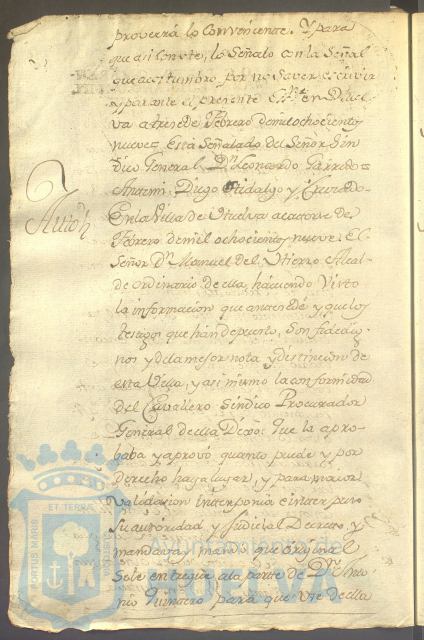 proveerá lo Conveniente. Y para
que asi Conste, lo Señalo con la Señal
que acostumbro por no Saver escrivir
y parante el presente Essno. en Huel-
va a trese de Febrero de mil ochocientos
nueve = Esta Señalado del Señor Sin-
dico General = Dn Leonardo Garrido =
Antemi = Diego Hidalgo y Cruzado =
Auto
En la Villa de Huelva a catorse de
Febrero de mil ochocientos nueve. El
Señor Dn Manuel del Hierro Alcal-
de ordinario de ella, haviendo Visto
la informacion que antecede y que los
testigos que han depuesto, Son fidedig-
nos y de la mejor nota y distincion de
esta Villa, y asi mismo la conformidad
del Cavallero Sindico Procurador
General de ella Dixo: Que la apro-
baba y aprovó quanto puede y por
derecho haya lugar, y para maior
validacion interponia e interpuso
Su autoridad y Judicial Decreto, y
mandava y mandó que original
Se le entregue a la parte de Dn
nio Quintero para que Use de ella
ET TERRAE
PORTUS MARIS
Ayuntamiento de
HUELVA